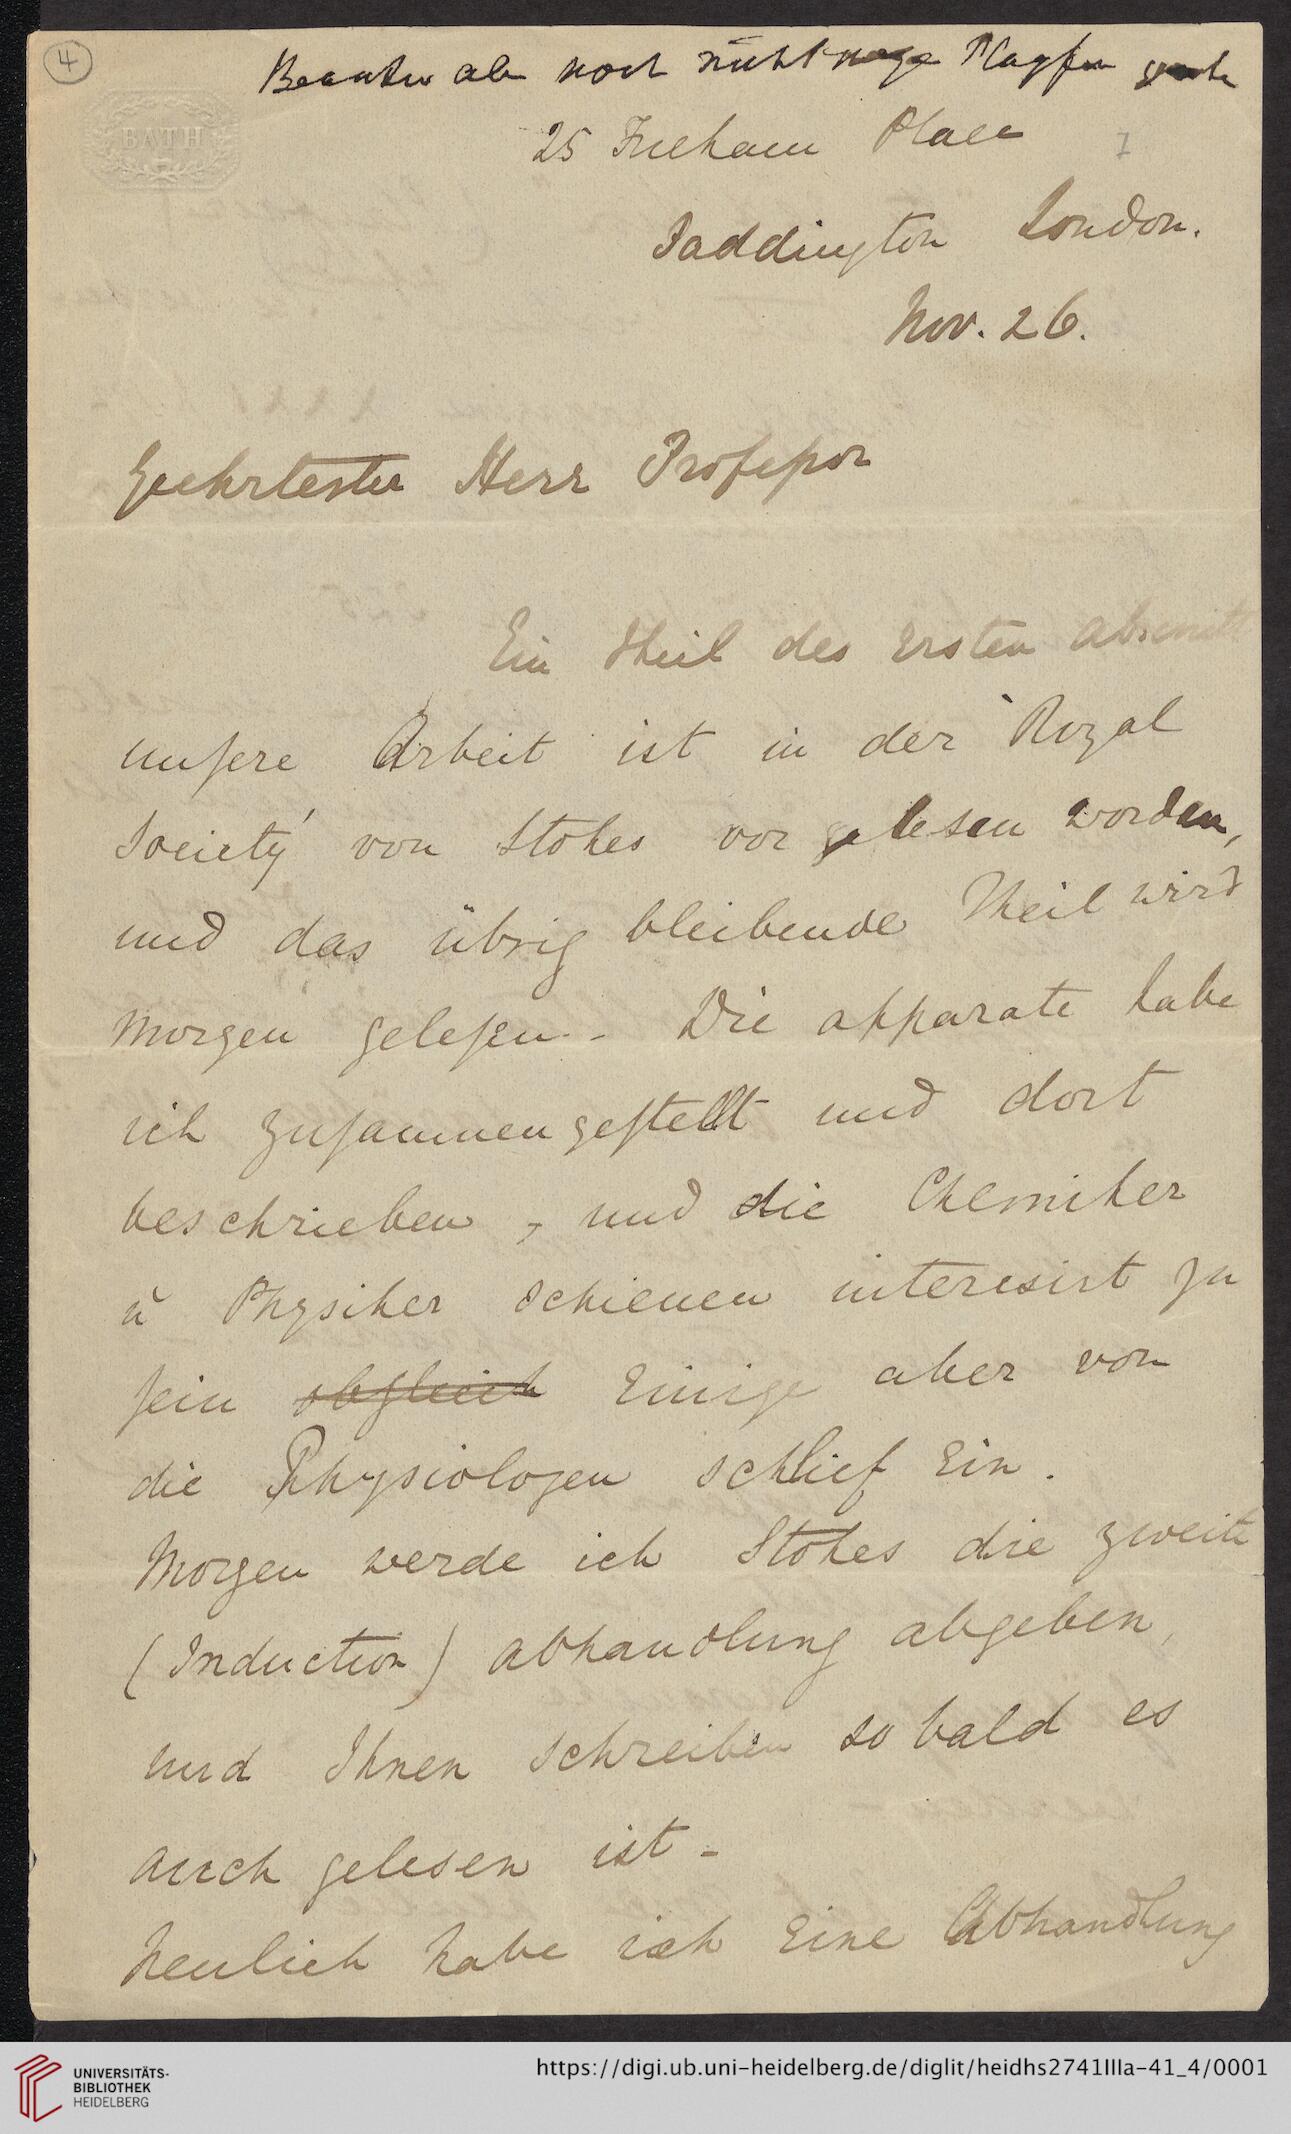 4
noch nicht
BATH
25 Place
7
Paddington London.
Nov. 26.
Geehrtester Herr Professor
Ein Theil des Ersten Abschnitt
unsere Arbeit ist in der Royal
Society von Stokes vor gelesen worden,
und das übrig bleibende Theil wird
Morgen gelesen. - Die apparate habe
ich zusammengestellt und dort
beschrieben, und die Chemiker
u Physiker schienen interesirt zu
sein obgleich Einige aber von
die Physiologen schlief Ein.
Morgen werde ich Stokes die zweite
(Induction) abhandlung abgeben,
und Ihnen schreiben so bald es
auch gelesen ist -
Neulich habe ich Eine Abhandlung
UNIVERSITÄTS-
BIBLIOTHEK
HEIDELBERG
https://digi.ub.uni-heidelberg.de/diglit/heidhs2741IIIa-41_4/0001